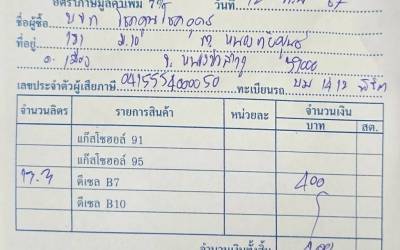 อัตราภาษีมูลค่าเพิ่ม 7% วันที่ 12 67
ชื่อผู้ซื้อ บจก โชคอุดมโชคอุดร
ที่อยู่ 121 ม.10
อ. เมือง จ. 39000
เลขประจำตัวผู้เสียภาษี 0415554000050 ทะเบียนรถ บม 1412
จำนวนลิตร รายการสินค้า หน่วยละ จำนวนเงิน
บาท สต.
แก๊สโซฮอล์ 91
แก๊สโซฮอล์ 95
13.3 ดีเซล B7 400
ดีเซล B10
จำนวนเงินทั้งสิ้น 400